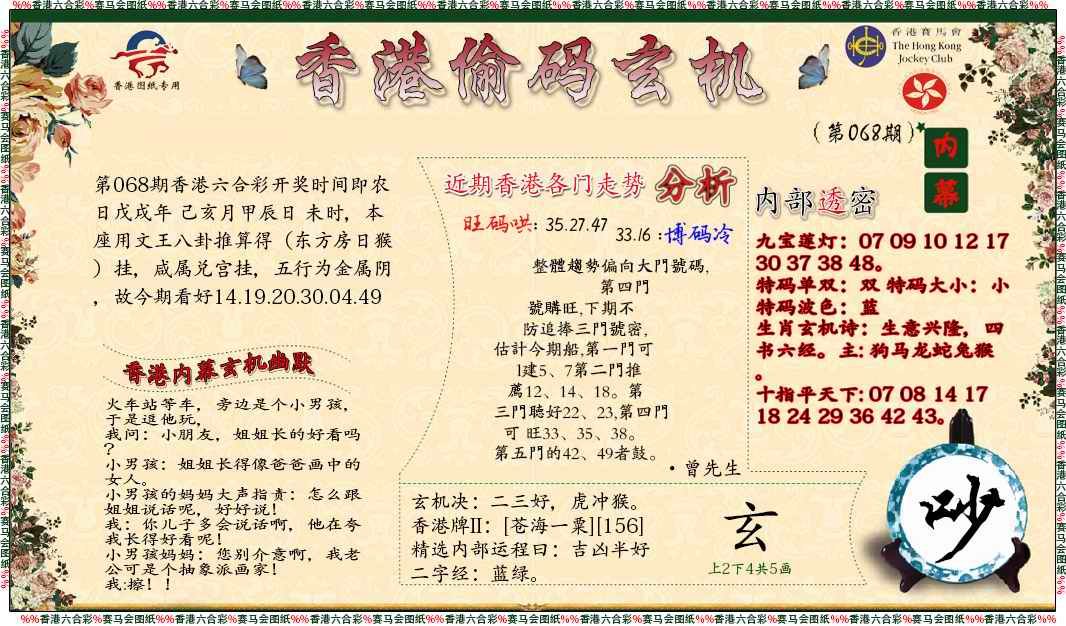 %%香港六合彩%赛马会图纸%%香港六合彩%赛马会图纸%%香港六合彩%赛马会图纸%%香港六合彩%赛马会图纸%%香港六合彩%赛马会图纸%%香港六合彩%赛马会图纸%%香港六合彩%%
香港图纸专用
香港偷码玄机
香港賽馬會
The Hong Kong
Jockey Club
(第068期)
内幕
第068期香港六合彩开奖时间即农
日戊戌年 己亥月甲辰日 未时，本
座用文王八卦推算得（东方房日猴
）挂，咸属兑宫挂，五行为金属阴
，故今期看好14.19.20.30.04.49
香港内幕玄机幽默
火车站等车，旁边是个小男孩，
于是逗他玩，
我问：小朋友，姐姐长的好看吗
？
小男孩：姐姐长得像爸爸画中的
女人。
小男孩的妈妈大声指责：怎么跟
姐姐说话呢，好好说！
我：你儿子多会说话啊，他在夸
我长得好看呢！
小男孩妈妈：您别介意啊，我老
公可是个抽象派画家！
我:擦！！
近期香港各门走势 分析
旺码哄: 35.27.47
33.16 :博码冷
整體趨勢偏向大門號碼,
第四門
號購旺,下期不
防追捧三門號密,
估計今期船,第一門可
l建5、7第二門推
薦12、14、18。第
三門聴好22、23,第四門
可 旺33、35、38。
第五門的42、49者鼓。
·曾先生
玄机决：二三好，虎冲猴。
香港牌II：[苍海一粟][156]
精选内部运程曰：吉凶半好
二字经：蓝绿。
玄
上2下4共5画
内部透密
九宝莲灯：07 09 10 12 17
30 37 38 48。
特码单双：双 特码大小：小
特码波色：蓝
生肖玄机诗：生意兴隆，四
书六经。主: 狗马龙蛇兔猴
。
十指平天下: 07 08 14 17
18 24 29 36 42 43。
吵
%%香港六合彩%赛马会图纸%%香港六合彩%赛马会图纸%%香港六合彩%赛马会图纸%%香港六合彩%赛马会图纸%%香港六合彩%赛马会图纸%%香港六合彩%赛马会图纸%%香港六合彩%%